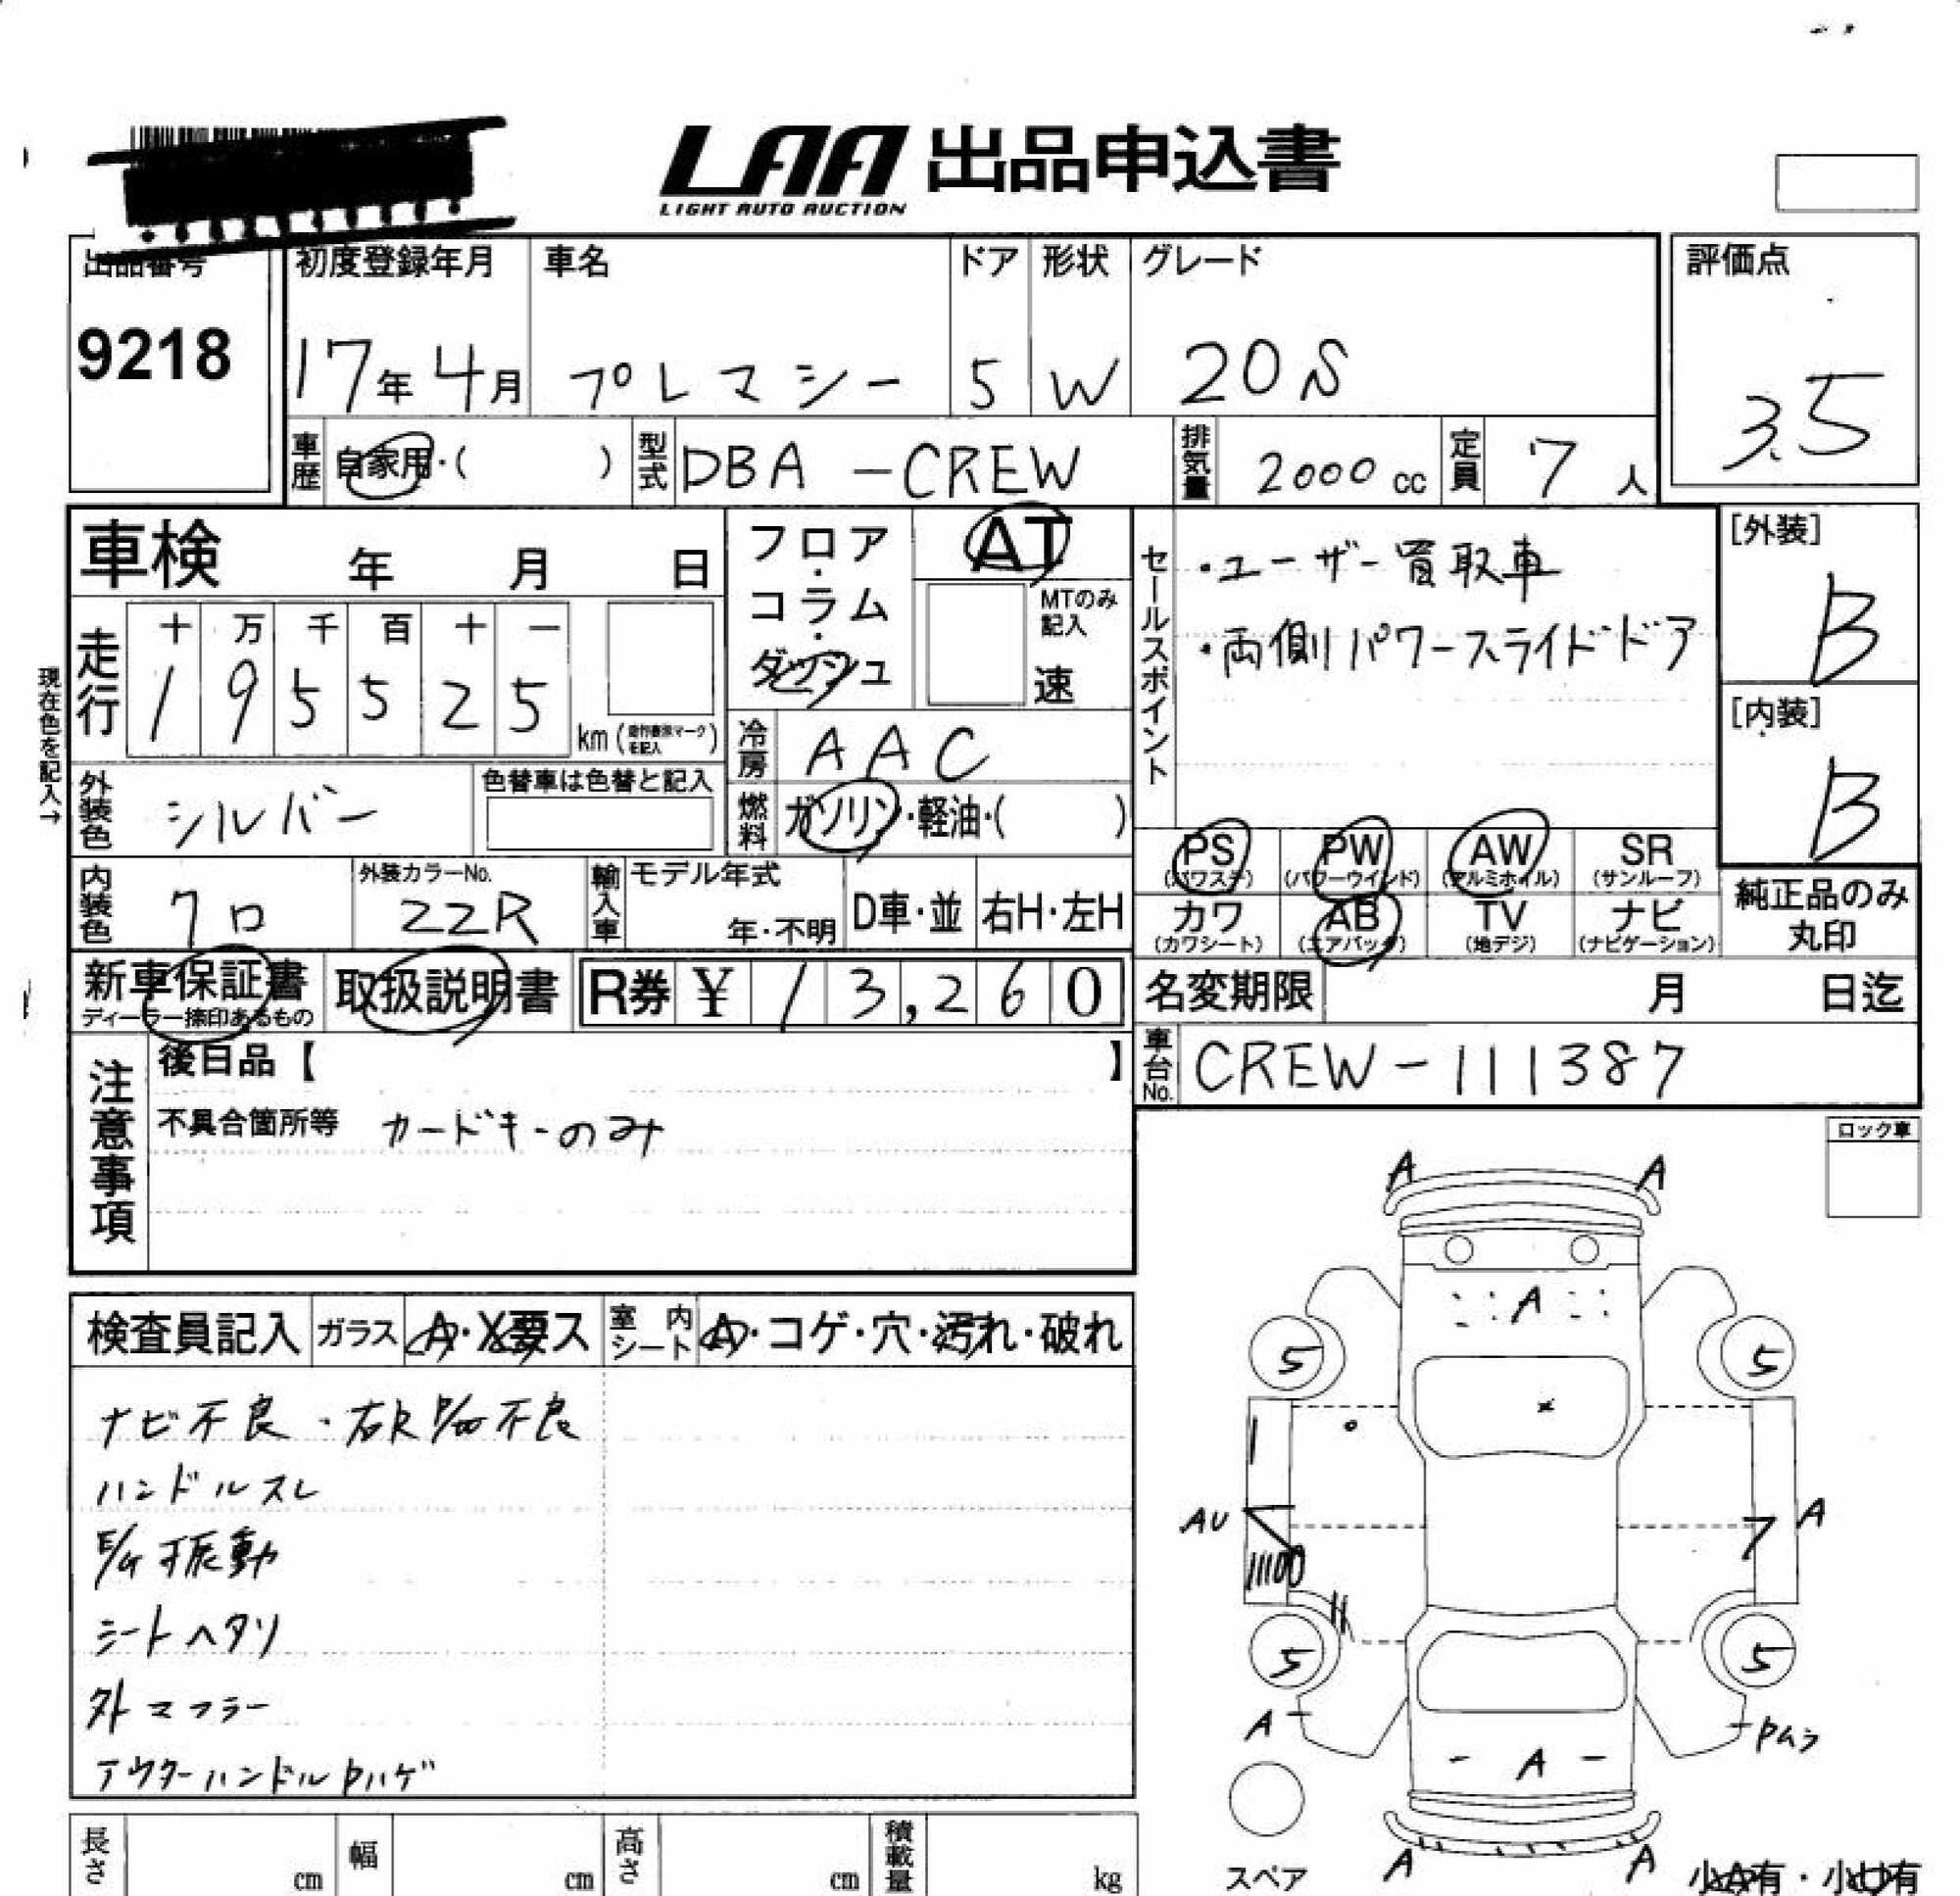 LAA 出品申込書
LIGHT AUTO AUCTION
出品番号 初度登録年月 車名 ドア 形状 グレード 評価点
9218 17年4月 プレマシー 5 W 20S 3.5
車歴 自家用・( ) 型式 DBA-CREW 排気量 2000cc 定員 7人
車検 年 月 日
フロア・コラム・ダッシュ
AT
MTのみ記入
速
セールスポイント
・ユーザー買取車
・両側パワースライドドア
[外装]
B
[内装]
B
現在色を記入→
走行 十 万 千 百 十 一
1 9 5 5 2 5 km
冷房 AAC
外装色 シルバー 色替車は色替と記入
燃料 ガソリン・軽油・( )
PS PW AW SR
(パワステ) (パワーウインド) (アルミホイル) (サンルーフ)
カワ AB TV ナビ
(カワシート) (エアバッグ) (地デジ) (ナビゲーション)
純正品のみ
丸印
内装色 クロ 外装カラーNo. 22R 輸入車 モデル年式 年・不明 D車・並 右H・左H
新車保証書 取扱説明書 R券 ¥ 13,260
ディーラー捺印あるもの
名変期限 月 日迄
車台No. CREW-111387
注意事項
後日品【 】
不具合箇所等 カードキーのみ
ロック車
検査員記入 ガラス A・X要ス 室内シート A・コゲ・穴・汚れ・破れ
ナビ不良・右R 不良
ハンドルスレ
E/G振動
シートヘタリ
外マフラー
アウターハンドルPハゲ
A A
A
5 5
AU A
5 5
A Pムラ
A
A A
スペア
小A有・小U有
長さ cm 幅 cm 高さ cm 積載量 kg